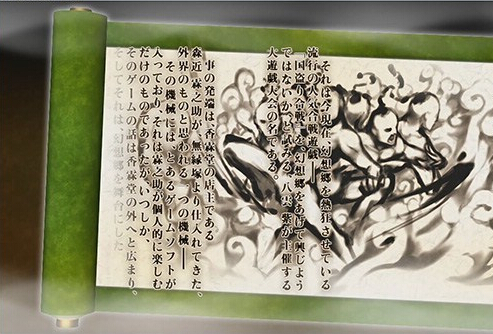 それは今現在、幻想郷を熱狂させている
流行の大人気合戦遊戯――
「国盗り合戦」を、幻想郷をあげて興じよう
ではないか、と試みる、八雲 紫が主催する
大遊戯大会の名である。
事の発端は香霖堂の店主である
森近 霖之助が、無縁塚より仕入れてきた、
外界のものと思われる一つの機械――
その機械には、とあるゲームソフトが
入っており、それは霖之助が個人的に楽しむ
だけのものであったが、いつしか、
そのゲームの話は香霖堂の外へと広まり、
そしてそれは、幻想郷を舞台にした